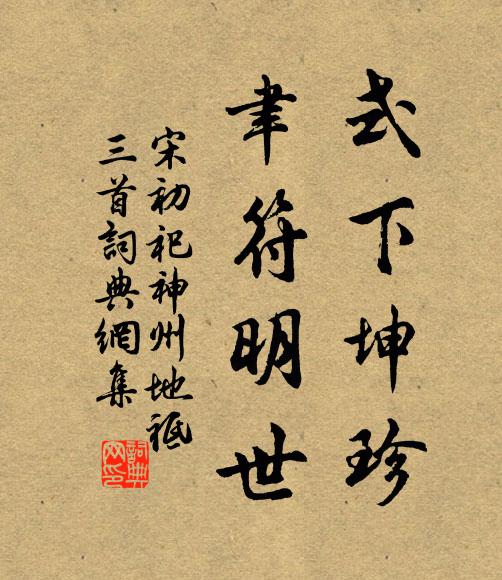 式下坤珍
聿符明世
宋初祀神州地祇
三首詞典網集
詞典網印